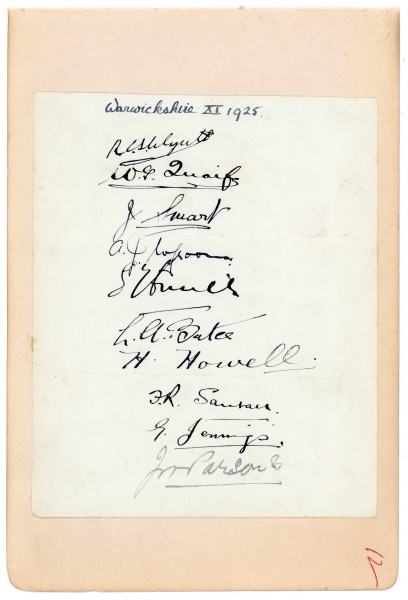 Warwickshire XI 1925.
R.E.S. Wyatt
W.G. Quaife
J. Smart
A.J.
L.A. Bates
H. Howell.
F.R. Santall.
G. Jennings.
Parsons
12